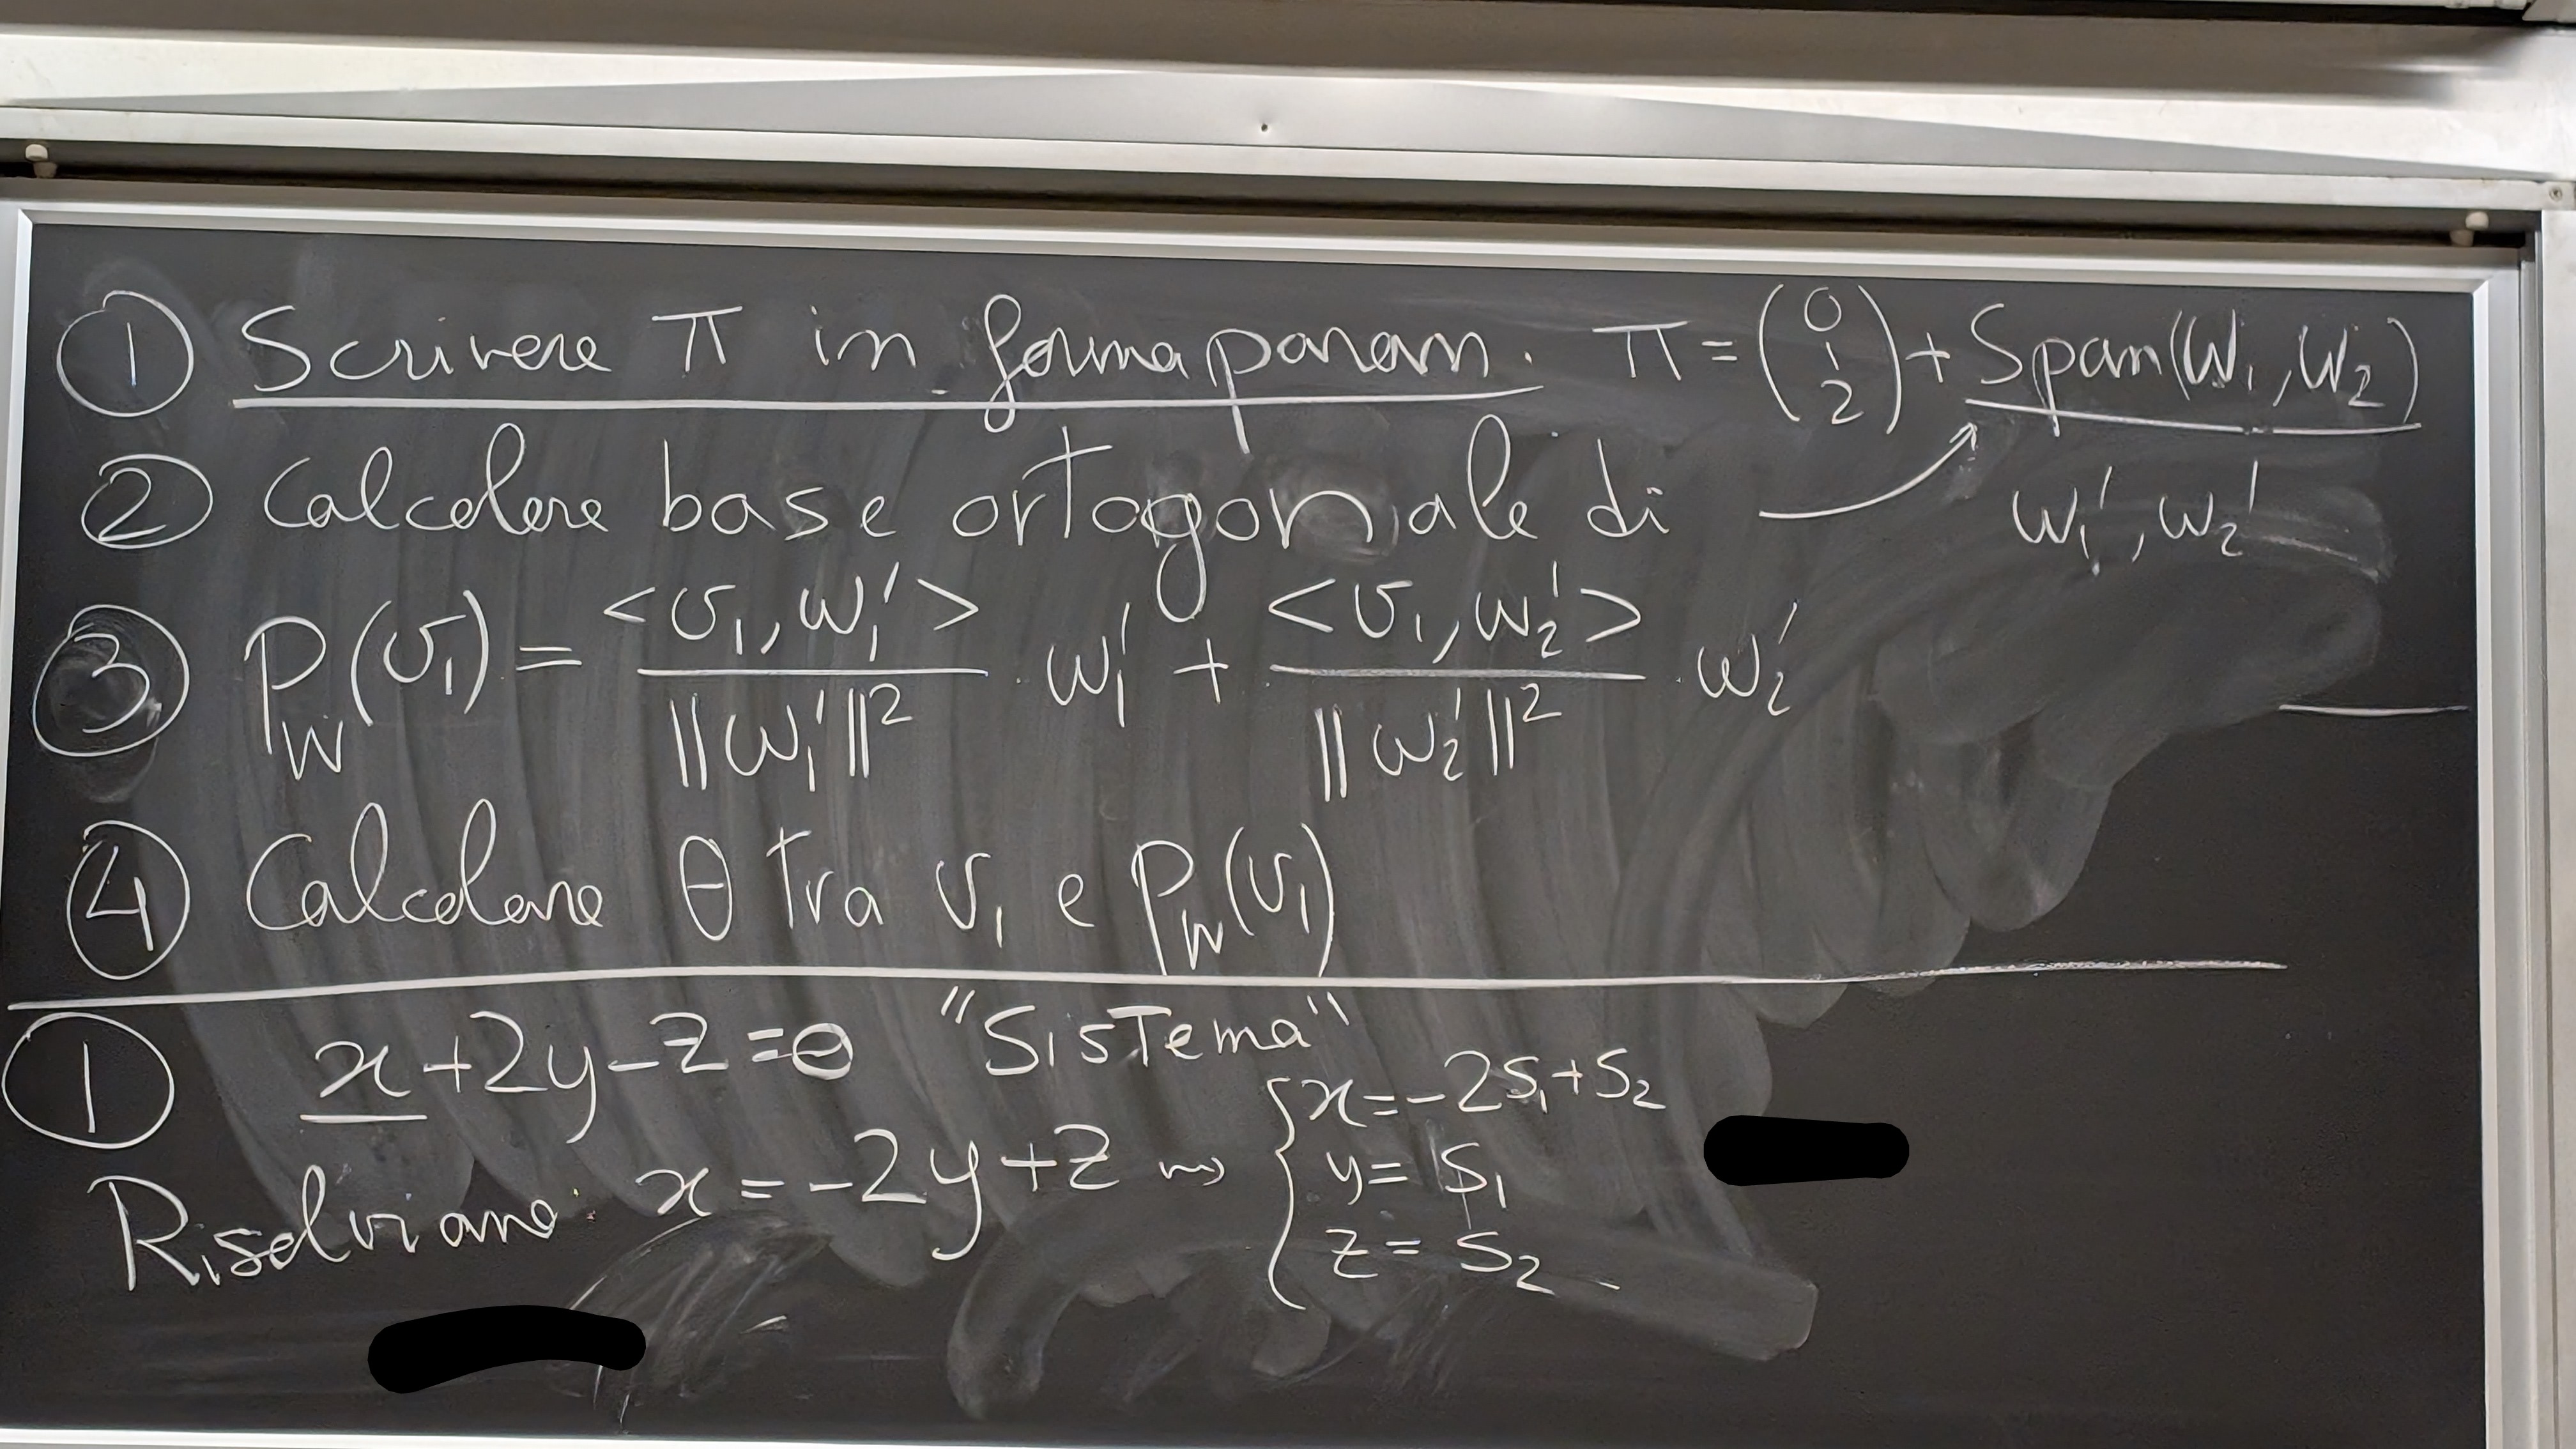 ① Scrivere π in forma param. π = (0 1 2) + Span(W₁, W₂)
② Calcolare base ortogonale di → w₁', w₂'
③ P_W(v₁) = <v₁, w₁'> / ||w₁'||² · w₁' + <v₁, w₂'> / ||w₂'||² · w₂'
④ Calcolare θ tra v₁ e P_W(v₁)
① x+2y-z=0 "Sistema"
Risolviamo: x = -2y+z ⇝ { x=-2s₁+s₂
y= s₁
z= s₂